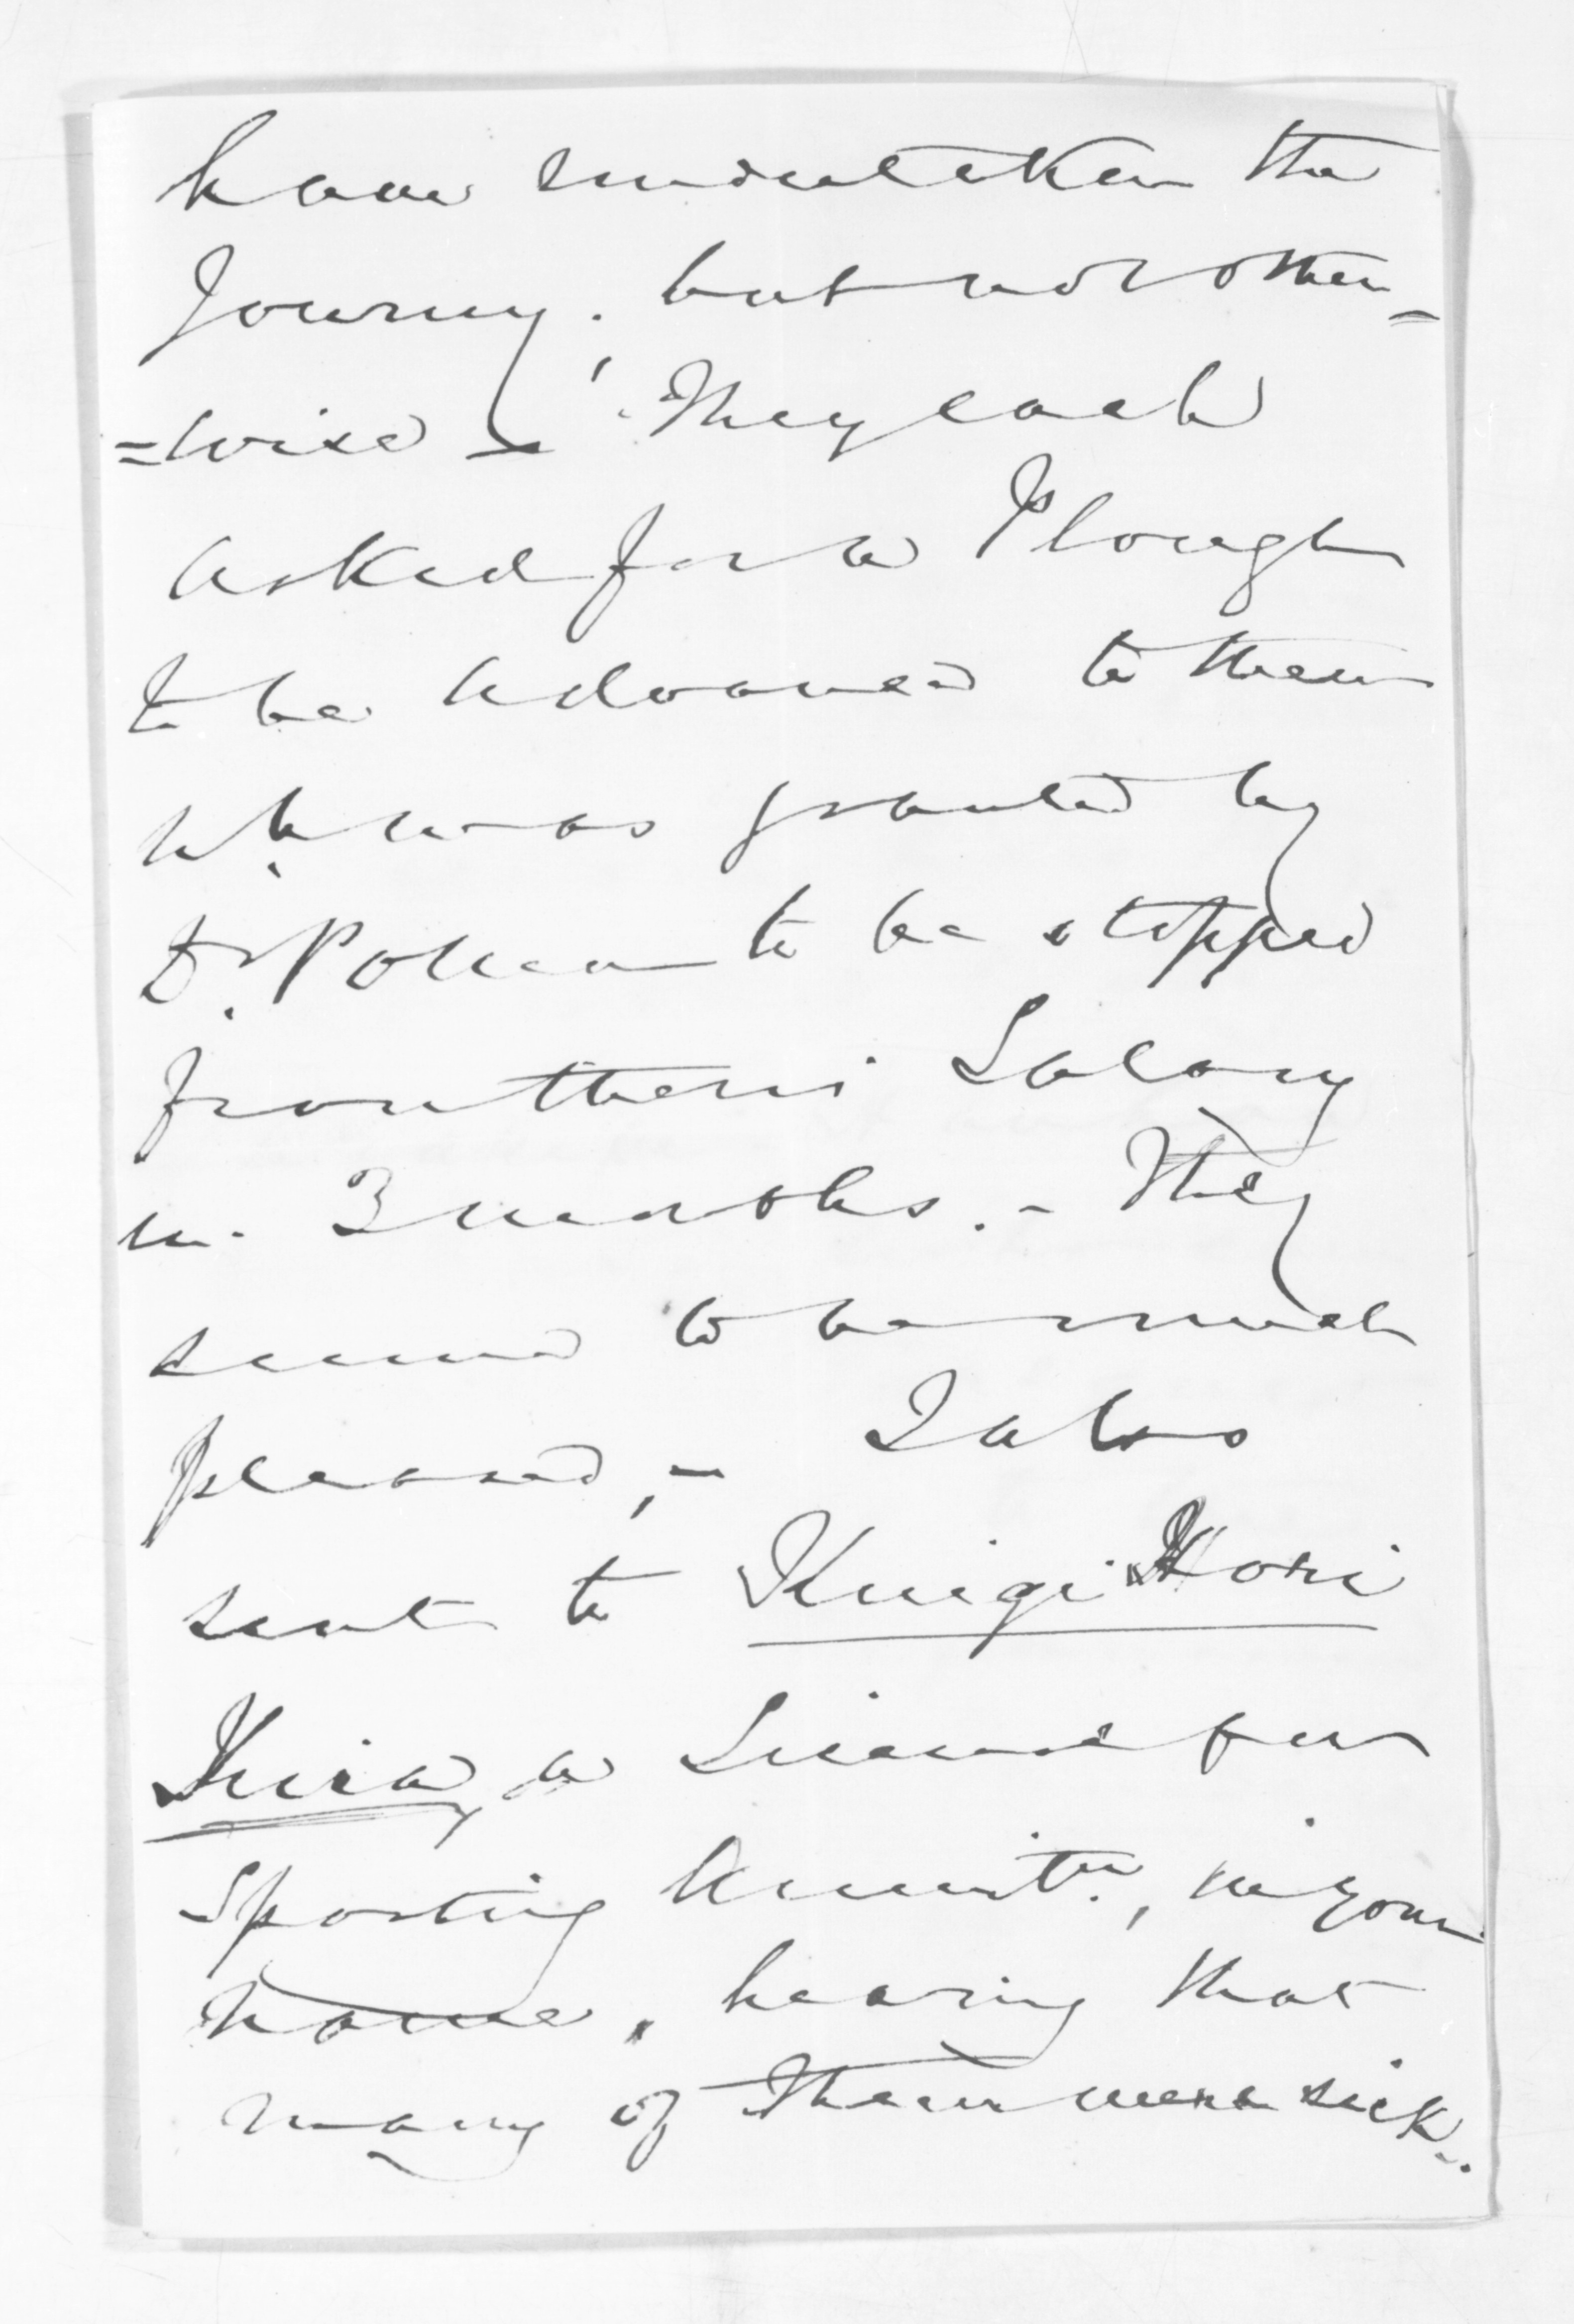 have undertaken the
Journey; but not other=
=wise. They each
asked for a Plough
to be advanced to them
wh. was granted by
Dr. Pollen to be stopped
from their Salary
in 3 months. - They
seemed to be much
pleased, - I also
sent to Kingi Hori
Kira, a License for
Sporting Ammitn., in your
name, hearing that
many of them were sick.